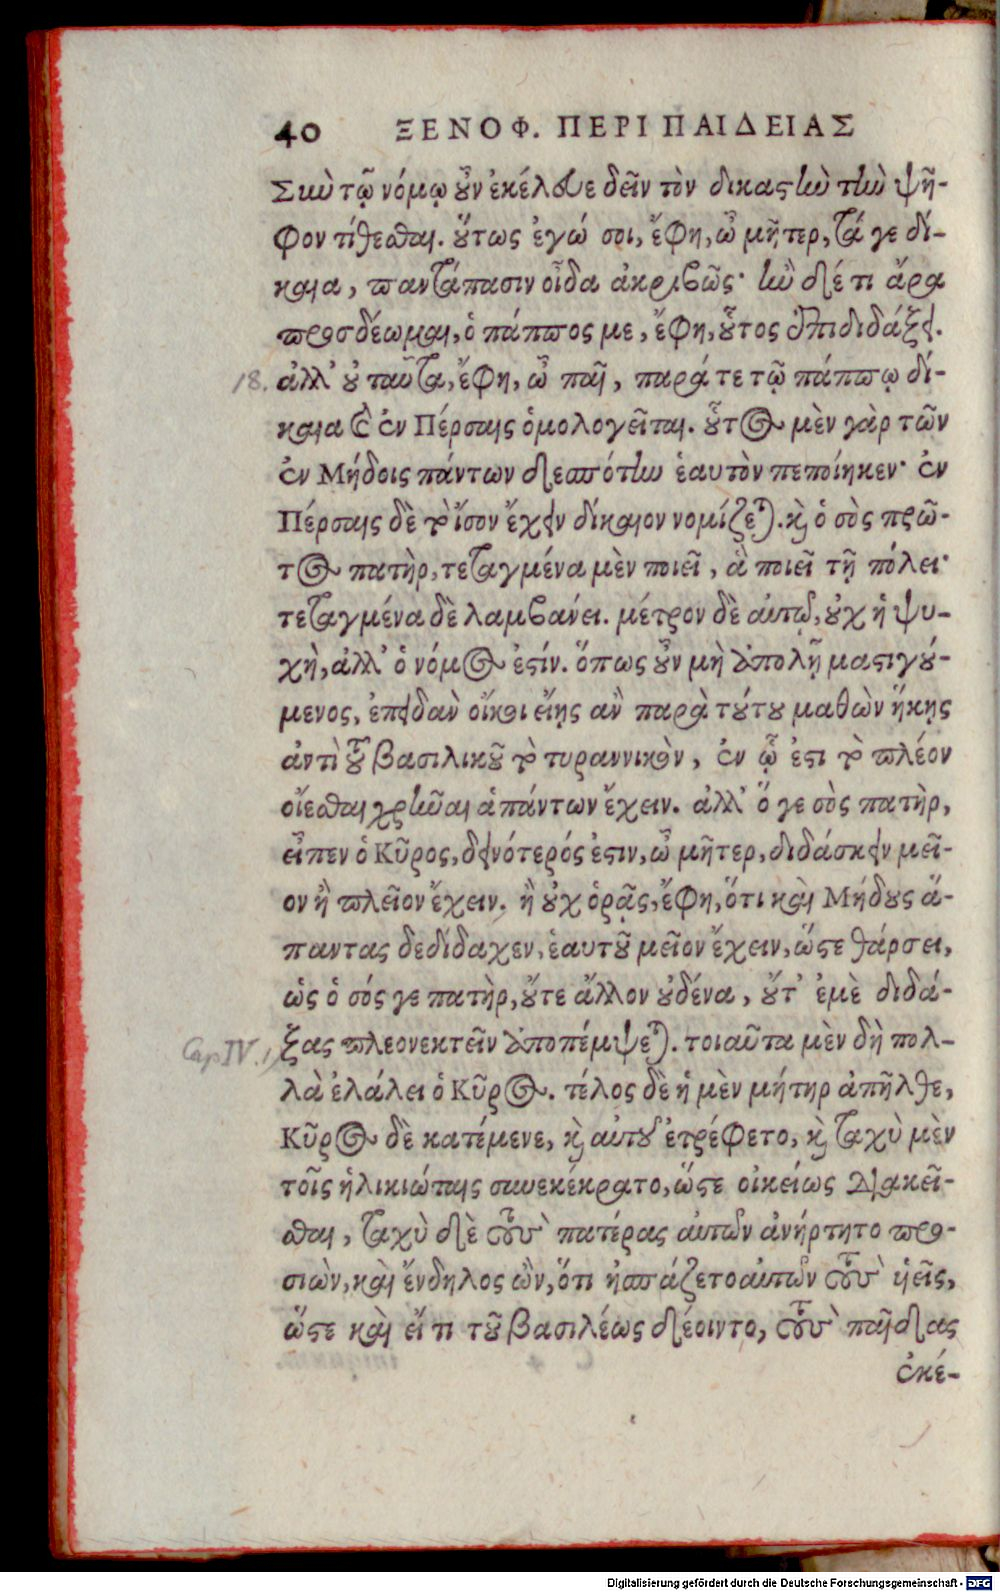 40 ΞΕΝΟΦ. ΠΕΡΙ ΠΑΙΔΕΙΑΣ
Σὺν τῷ νόμῳ οὖν ἐκέλευε δεῖν τὸν δικαστὴν τὴν ψῆ-
φον τίθεσθαι. οὕτως ἐγώ σοι, ἔφη, ὦ μῆτερ, τά γε δί-
καια, πανταπασιν οἶδα ἀκριβῶς· ἢν δέ τι ἄρα
προσδέωμαι, ὁ πάππος με, ἔφη, οὗτος ἐπιδιδάξει.
18. ἀλλ' οὐ ταῦτα, ἔφη, ὦ παῖ, παρά τε τῷ πάππῳ δί-
καια καὶ ἐν Πέρσαις ὁμολογεῖται. οὗτος μὲν γὰρ τῶν
ἐν Μήδοις πάντων δεσπότην ἑαυτὸν πεποίηκεν· ἐν
Πέρσαις δὲ τὸ ἴσον ἔχειν δίκαιον νομίζεται. καὶ ὁ σὸς πρῶ-
τος πατὴρ, τεταγμένα μὲν ποιεῖ, ἃ ποιεῖ τῇ πόλει·
τεταγμένα δὲ λαμβάνει. μέτρον δὲ αὐτῷ, οὐχ ἡ ψυ-
χὴ, ἀλλ' ὁ νόμος ἐστίν. ὅπως οὖν μὴ ἀπολῇ μαστιγού-
μενος, ἐπειδαν οἴκοι εἴης ἂν παρὰ τούτου μαθὼν ἥκῃς
ἀντὶ τοῦ βασιλικοῦ τὸ τυραννικὸν, ἐν ᾧ ἐστι τὸ πλέον
οἴεσθαι χρῆναι ἁπάντων ἔχειν. ἀλλ' ὅ γε σὸς πατὴρ,
εἶπεν ὁ Κῦρος, δεινότερός ἐστιν, ὦ μῆτερ, διδάσκειν μεῖ-
ον ἢ πλεῖον ἔχειν. ἢ οὐχ ὁρᾷς, ἔφη, ὅτι καὶ Μήδους ἅ-
παντας δεδίδαχεν, ἑαυτοῦ μεῖον ἔχειν, ὥστε θάρσει,
ὡς ὁ σός γε πατὴρ, οὔτε ἄλλον οὐδένα, οὔτ' ἐμὲ διδά-
Cap. IV. 1) ξας πλεονεκτεῖν ἀποπέμψεται. τοιαῦτα μὲν δὴ πολ-
λὰ ἐλάλει ὁ Κῦρος. τέλος δὲ ἡ μὲν μήτηρ ἀπῆλθε,
Κῦρος δὲ κατέμενε, καὶ αὐτοῦ ἐτρέφετο, καὶ ταχὺ μὲν
τοῖς ἡλικιώταις συνεκέκρατο, ὥστε οἰκείως διακεῖ-
σθαι, ταχὺ δὲ τοὺς πατέρας αὐτῶν ἀνήρτητο προ-
σιὼν, καὶ ἔνδηλος ὢν, ὅτι ἠσπάζετο αὐτῶν τοὺς υἱεῖς,
ὥστε καὶ εἴ τι τοῦ βασιλέως δέοιντο, τοὺς παῖδας
ἐκέ-
Digitalisierung gefördert durch die Deutsche Forschungsgemeinschaft - DFG